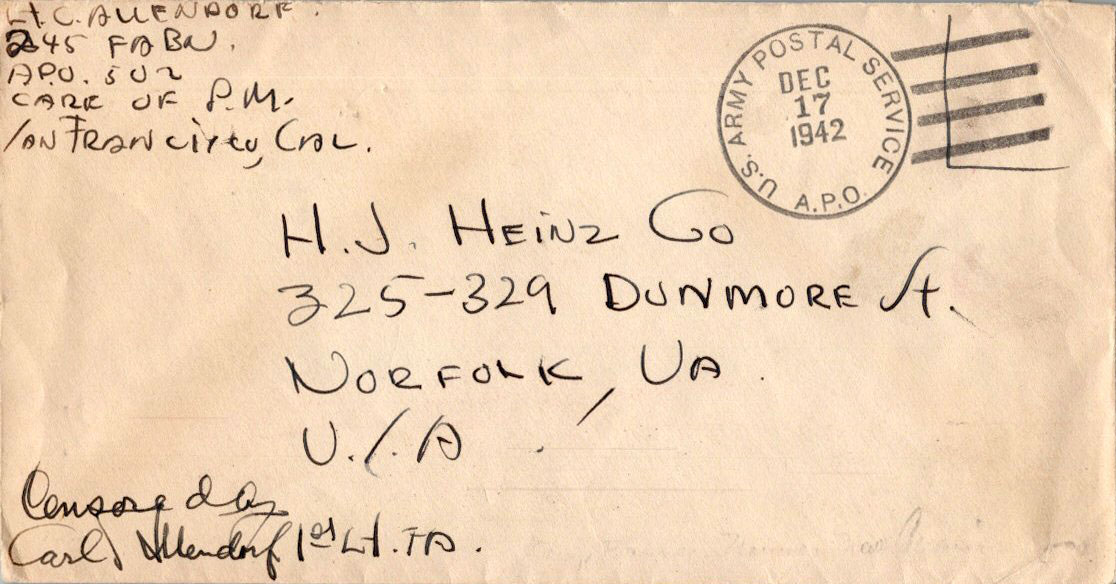 Lt. C. ALLENDORF.
245 FA BN.
APO. 502
CARE OF P.M.
San FRANCisco, CAL.
U.S. ARMY POSTAL SERVICE
DEC
17
1942
A.P.O.
H.J. HEINZ Co
325-329 DUNMORE St.
NORFOLK, VA.
U.S.A.
Censored by
Carl Allendorf 1st Lt. FA.